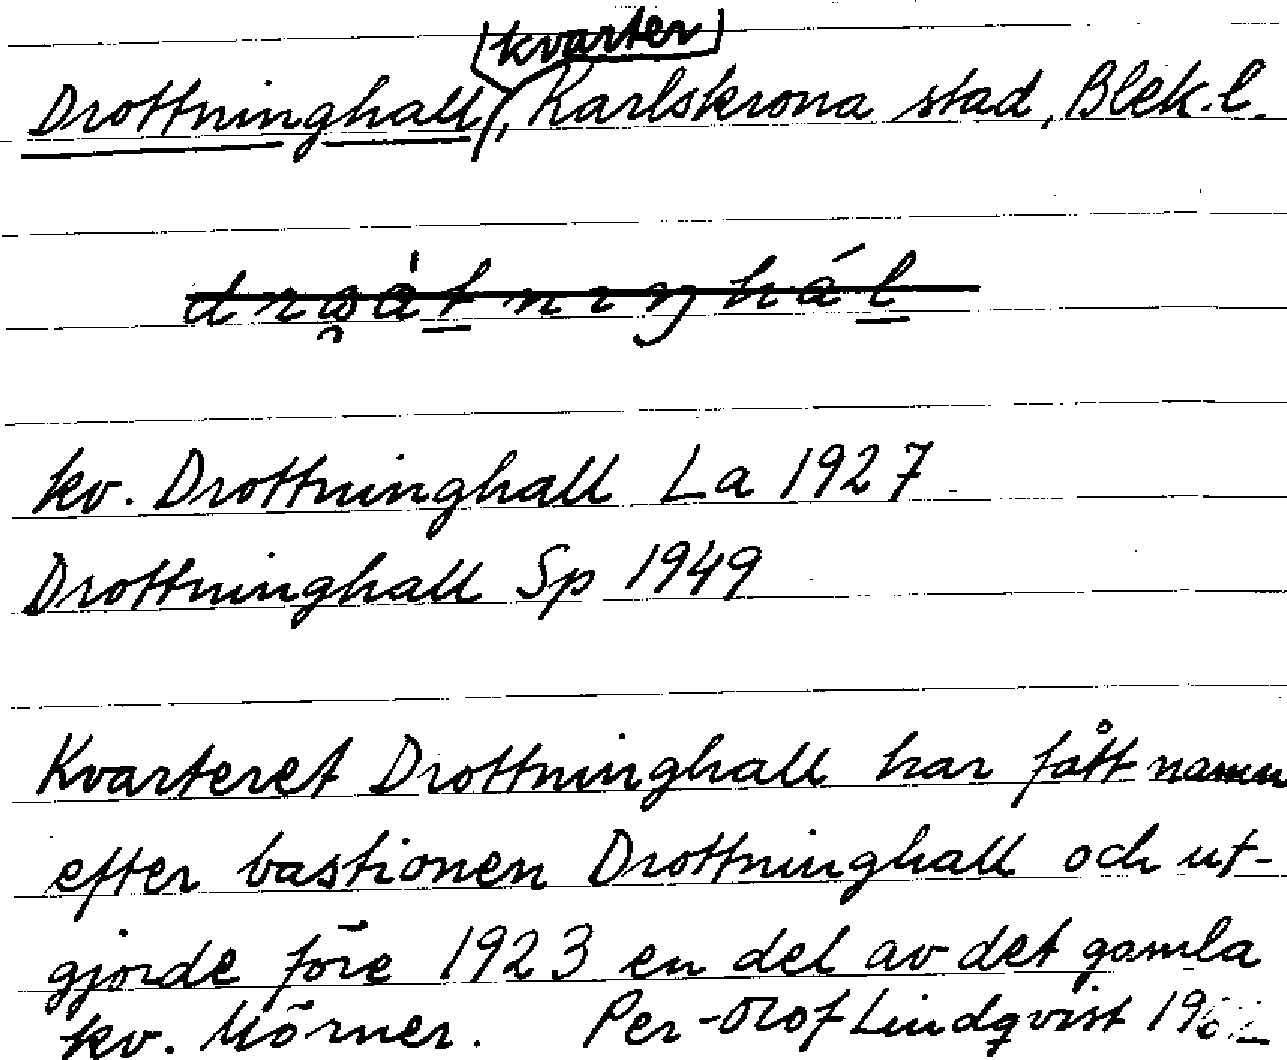 kvarter
Drottninghall, Karlskrona stad, Blek. l.
kv. Drottninghall La 1927
Drottninghall Sp 1949
Kvarteret Drottninghall har fått namn
efter bastionen Drottninghall och ut-
gjorde före 1923 en del av det gamla
kv. Mörner. Per-Olof Lindqvist